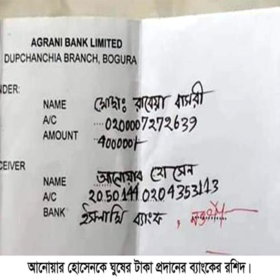 AGRANI BANK LIMITED
DUPCHANCHIA BRANCH, BOGURA
NDER:
NAME মোছাঃ রাবেয়া বাসরী
A/C 0200007272639
AMOUNT 400000/-
CEIVER
NAME আনোয়ার হোসেন
A/C 20501440204353113
BANK ইসলামি ব্যাংক,
আনোয়ার হোসেনকে ঘুষের টাকা প্রদানের ব্যাংকের রশিদ।